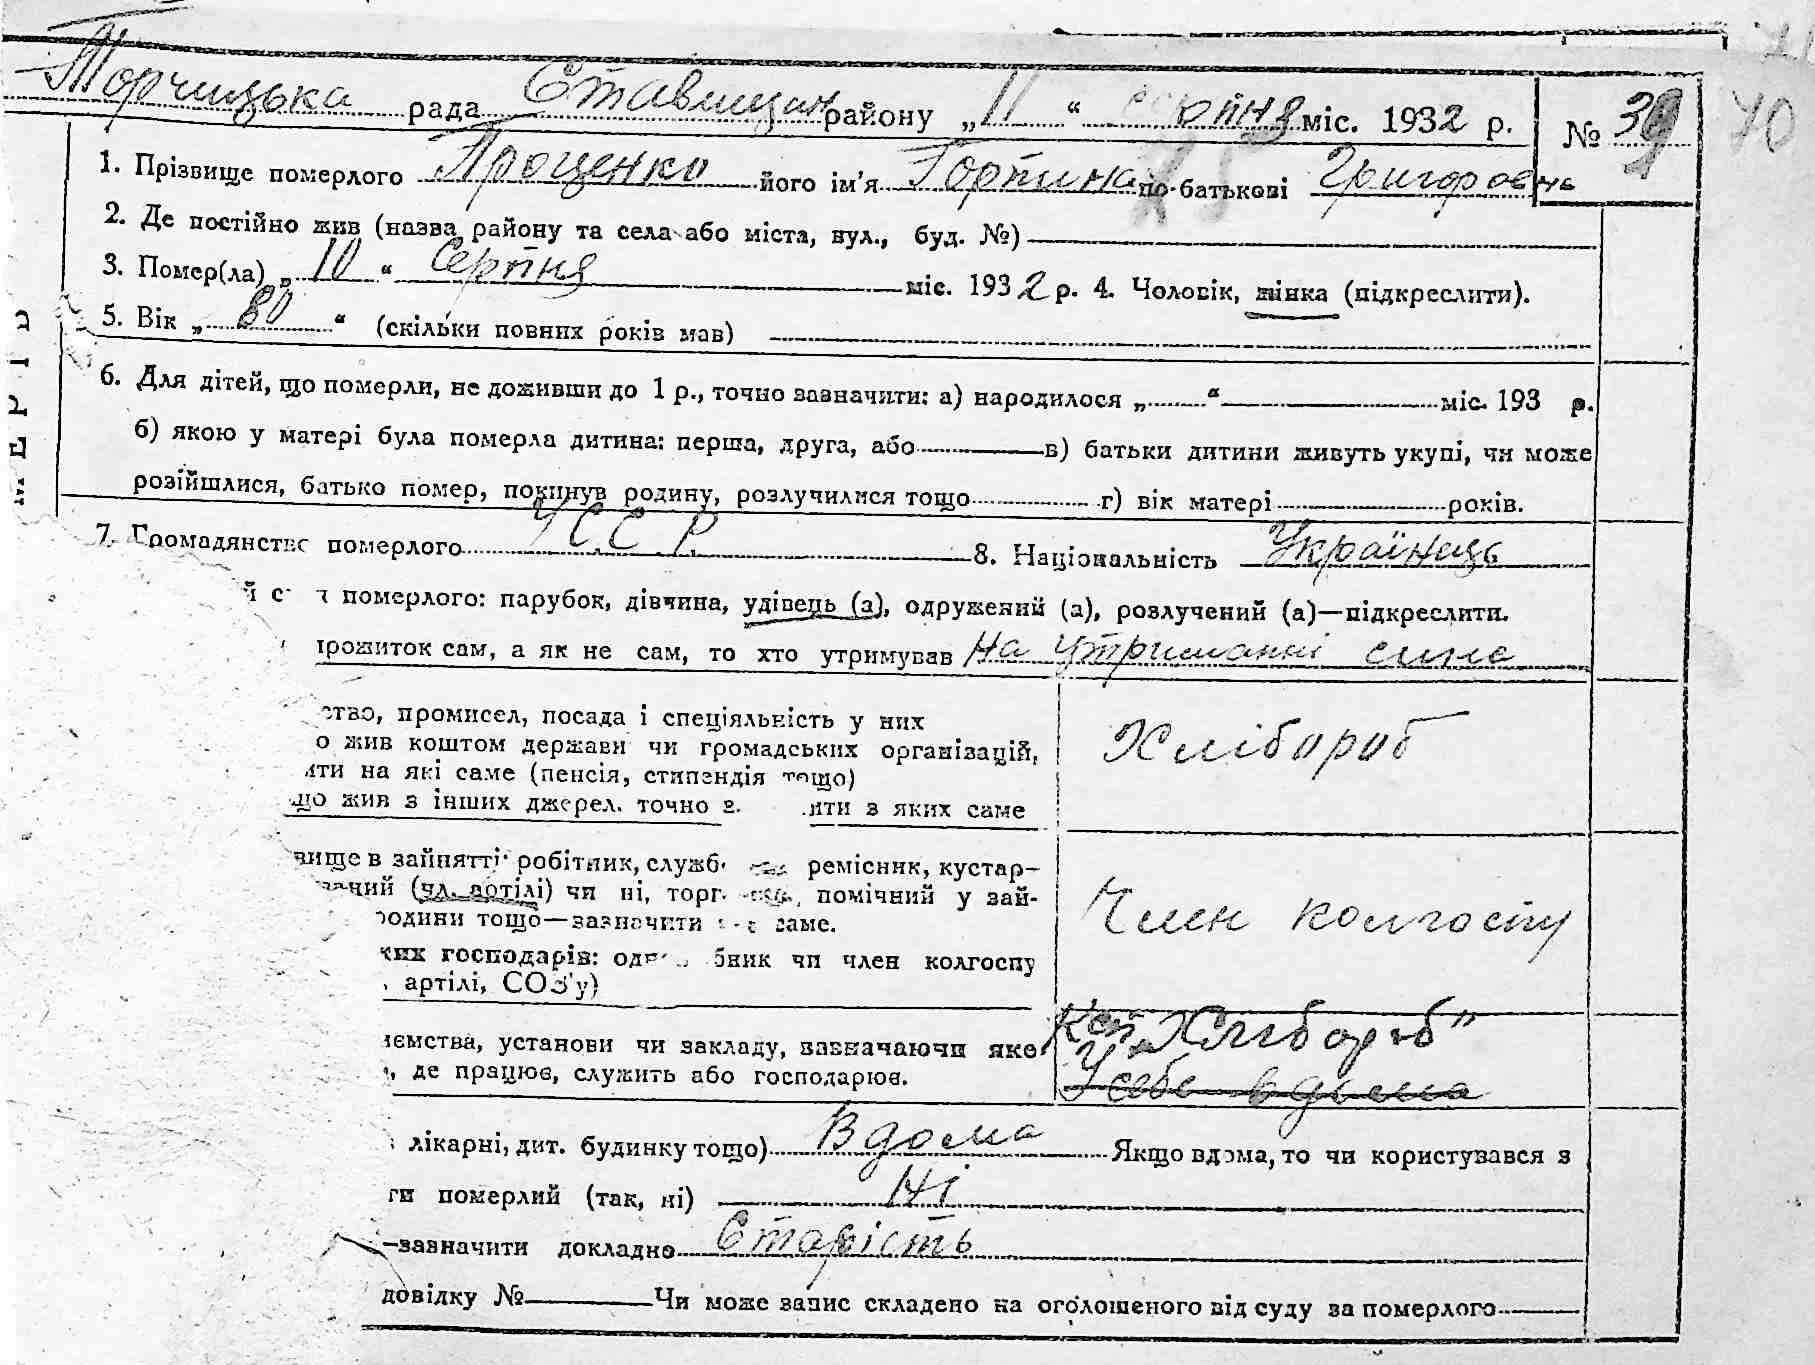 Торчицька рада Ставищан району „11“ серпня міс. 1932 р. № 39 70
1. Прізвище померлого Проценко його ім’я Гортина по-батькові Григоровна
2. Де постійно жив (назва району та села або міста, вул., буд. №)
3. Помер(ла) „10“ Серпня міс. 1932 р. 4. Чоловік, жінка (підкреслити).
5. Вік „80“ (скільки повних років мав)
6. Для дітей, що померли, не доживши до 1 р., точно зазначити: а) народилося „ “ міс. 193 р.
б) якою у матері була померла дитина: перша, друга, або в) батьки дитини живуть укупі, чи може
розійшлися, батько помер, покинув родину, розлучилися тощо г) вік матері років.
7. Громадянство померлого У.С.С.Р. 8. Національність Українець
й с н померлого: парубок, дівчина, удівець (а), одружений (а), розлучений (а)—підкреслити.
прожиток сам, а як не сам, то хто утримував На утриманні сина
ство, промисел, посада і спеціяльність у них
о жив коштом держави чи громадських організацій,
ити на які саме (пенсія, стипендія тощо)
що жив з інших джерел, точно з ити з яких саме
Хлібороб
вище в зайнятті: робітник, служб ремісник, кустар-
ваний (чл. артілі) чи ні, торг помічний у зай-
родини тощо—зазначити саме.
ких господарів: одн бник чи член колгоспу
, артілі, СОЗ’у)
Член колгоспу
иємства, установи чи закладу, зазначаючи яке
, де працює, служить або господарює.
„Хлібороб”
У себе вдома
лікарні, дит. будинку тощо) Вдома Якщо вдома, то чи користувався з
ги померлий (так, ні) Ні
—зазначити докладно Старість
довідку № Чи може запис складено на оголошеного від суду за померлого